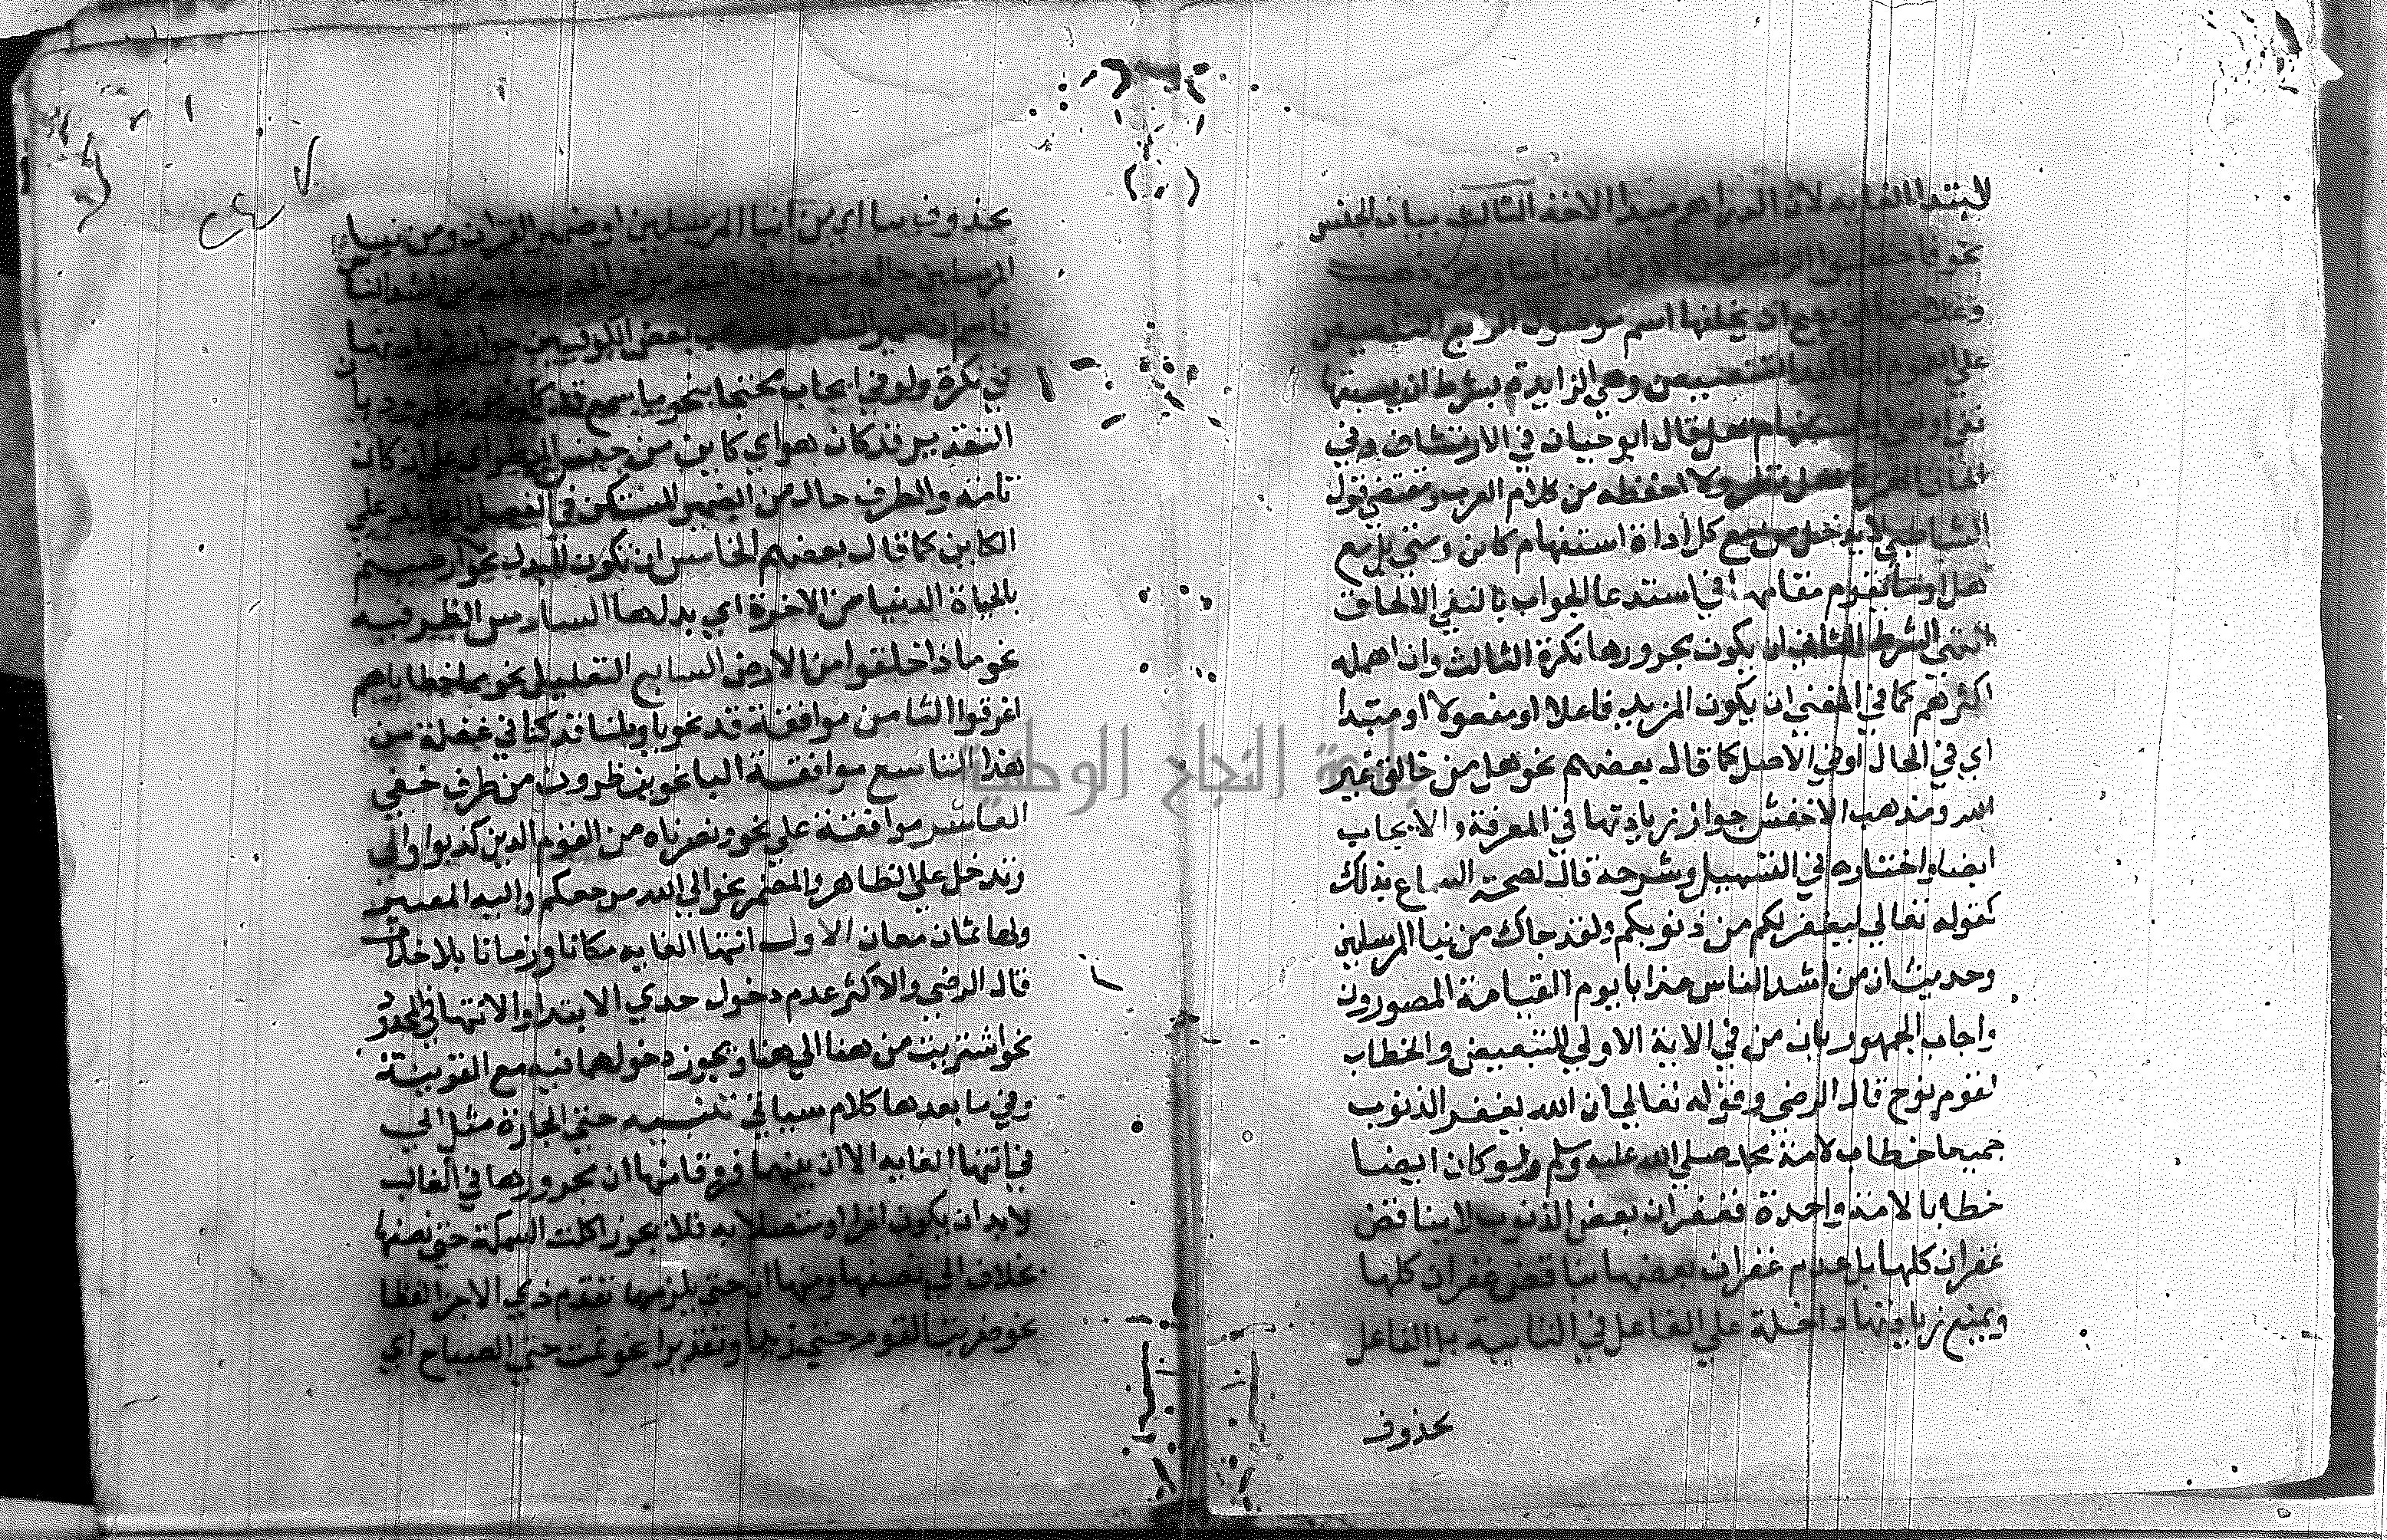 لابتدا الغايه لان الدراهم مبدا الاخذ الثالث بيان الجنس
نحو فاجتنبوا الرجس من الاوثان واساور من ذهب
وعلامتها ان يصح ان يخلفها اسم موصول الرابع التنصيص
علي العموم او تاكيد التنصيص وهي الزايدة بشرط ان يسبقها
نفي او نهي او استفهام بهل قال ابو حيان في الارتشاف وفي
الحاق الهمزة بهل نظر ولا احفظه من كلام العرب ومقتضي قول
الشاطبي لا يدخل من مع كل اداة استفهام كاين ومتي بل مع
هل او ما يقوم مقامها في استدعا الجواب بالنفي الالحاق
انتهي الشرط الثاني ان يكون مجرورها نكرة الثالث وان اهمله
اكثرهم كما في المغني ان يكون المزيد فاعلا او مفعولا او مبتدا
اي في الحال او في الاصل كما قال بعضهم نحو هل من خالق غير
الله ومذهب الاخفش جواز زيادتها في المعرفة والايجاب
ايضا واختاره في التسهيل وشرحه قال لصحة السماع بذلك
كقوله تعالي ليغفر لكم من ذنوبكم ولقد جاك من نبا المرسلين
وحديث ان من اشد الناس عذابا يوم القيامة المصورون
واجاب الجمهور بان من في الاية الاولي للتبعيض والخطاب
لقوم نوح قال الرضي وقوله تعالي ان الله يغفر الذنوب
جميعا خطاب لامة محمد صلي الله عليه وسلم ولو كان ايضا
خطابا لامة واحدة فغفران بعض الذنوب لا يناقض
غفران كلها بل عدم غفران بعضها يناقض غفران كلها
ويمنع زيادتها داخلة علي الفاعل في الثانية بل الفاعل
محذوف
محذوف ما اي من انبا المرسلين او ضمير القران ومن نبا
المرسلين حال منه وبان التقدير في الحديث انه من اشد الناس
فاسم ان ضمير الشان ومذهب بعض الكوفيين جواز زيادتها
في نكرة ولو في ايجاب محتجا بنحو ما سمع قد كان من مطر ورد بان
التقدير قد كان هو اي كاين من جنس المطر اي علي ان كان
تامة والظرف حال من الضمير المستكن في الفعل العايد علي
الكاين كما قال بعضهم الخامس ان تكون للبدل نحو ارضيتم
بالحياة الدنيا من الاخرة اي بدلها السادس الظرفيه
نحو ماذا خلقوا من الارض السابع التعليل نحو مما خطاياهم
اغرقوا الثامن موافقة قد نحو يا ويلنا قد كنا في غفلة من
هذا التاسع موافقة البا نحو ينظرون من طرف خفي
العاشر موافقة علي نحو ونصرناه من القوم الذين كذبوا والي
وتدخل علي الظاهر والمضمر نحو الي الله مرجعكم واليه المصير
ولها ثمان معان الاول انتها الغايه مكانا وزمانا بلا خلاف
قال الرضي والاكثر عدم دخول حدي الابتدا والانتها في المحدود
نحو اشتريت من هنا الي هنا ويجوز دخولهما فيه مع القرينة
وفي ما بعدها كلام سياتي تنبيه حتي الجارة مثل الي
في انتها الغايه الا ان بينهما فروقا منها ان مجرورها في الغالب
لابد ان يكون اخرا او متصلا به فلا يجوز اكلت السمكة حتي نصفها
بخلاف الي نصفها ومنها ان حتي يلزمها تقدم ذي الاجزا لفظا
نحو ضربت القوم حتي زيدا وتقديرا نحو نمت حتي الصباح اي